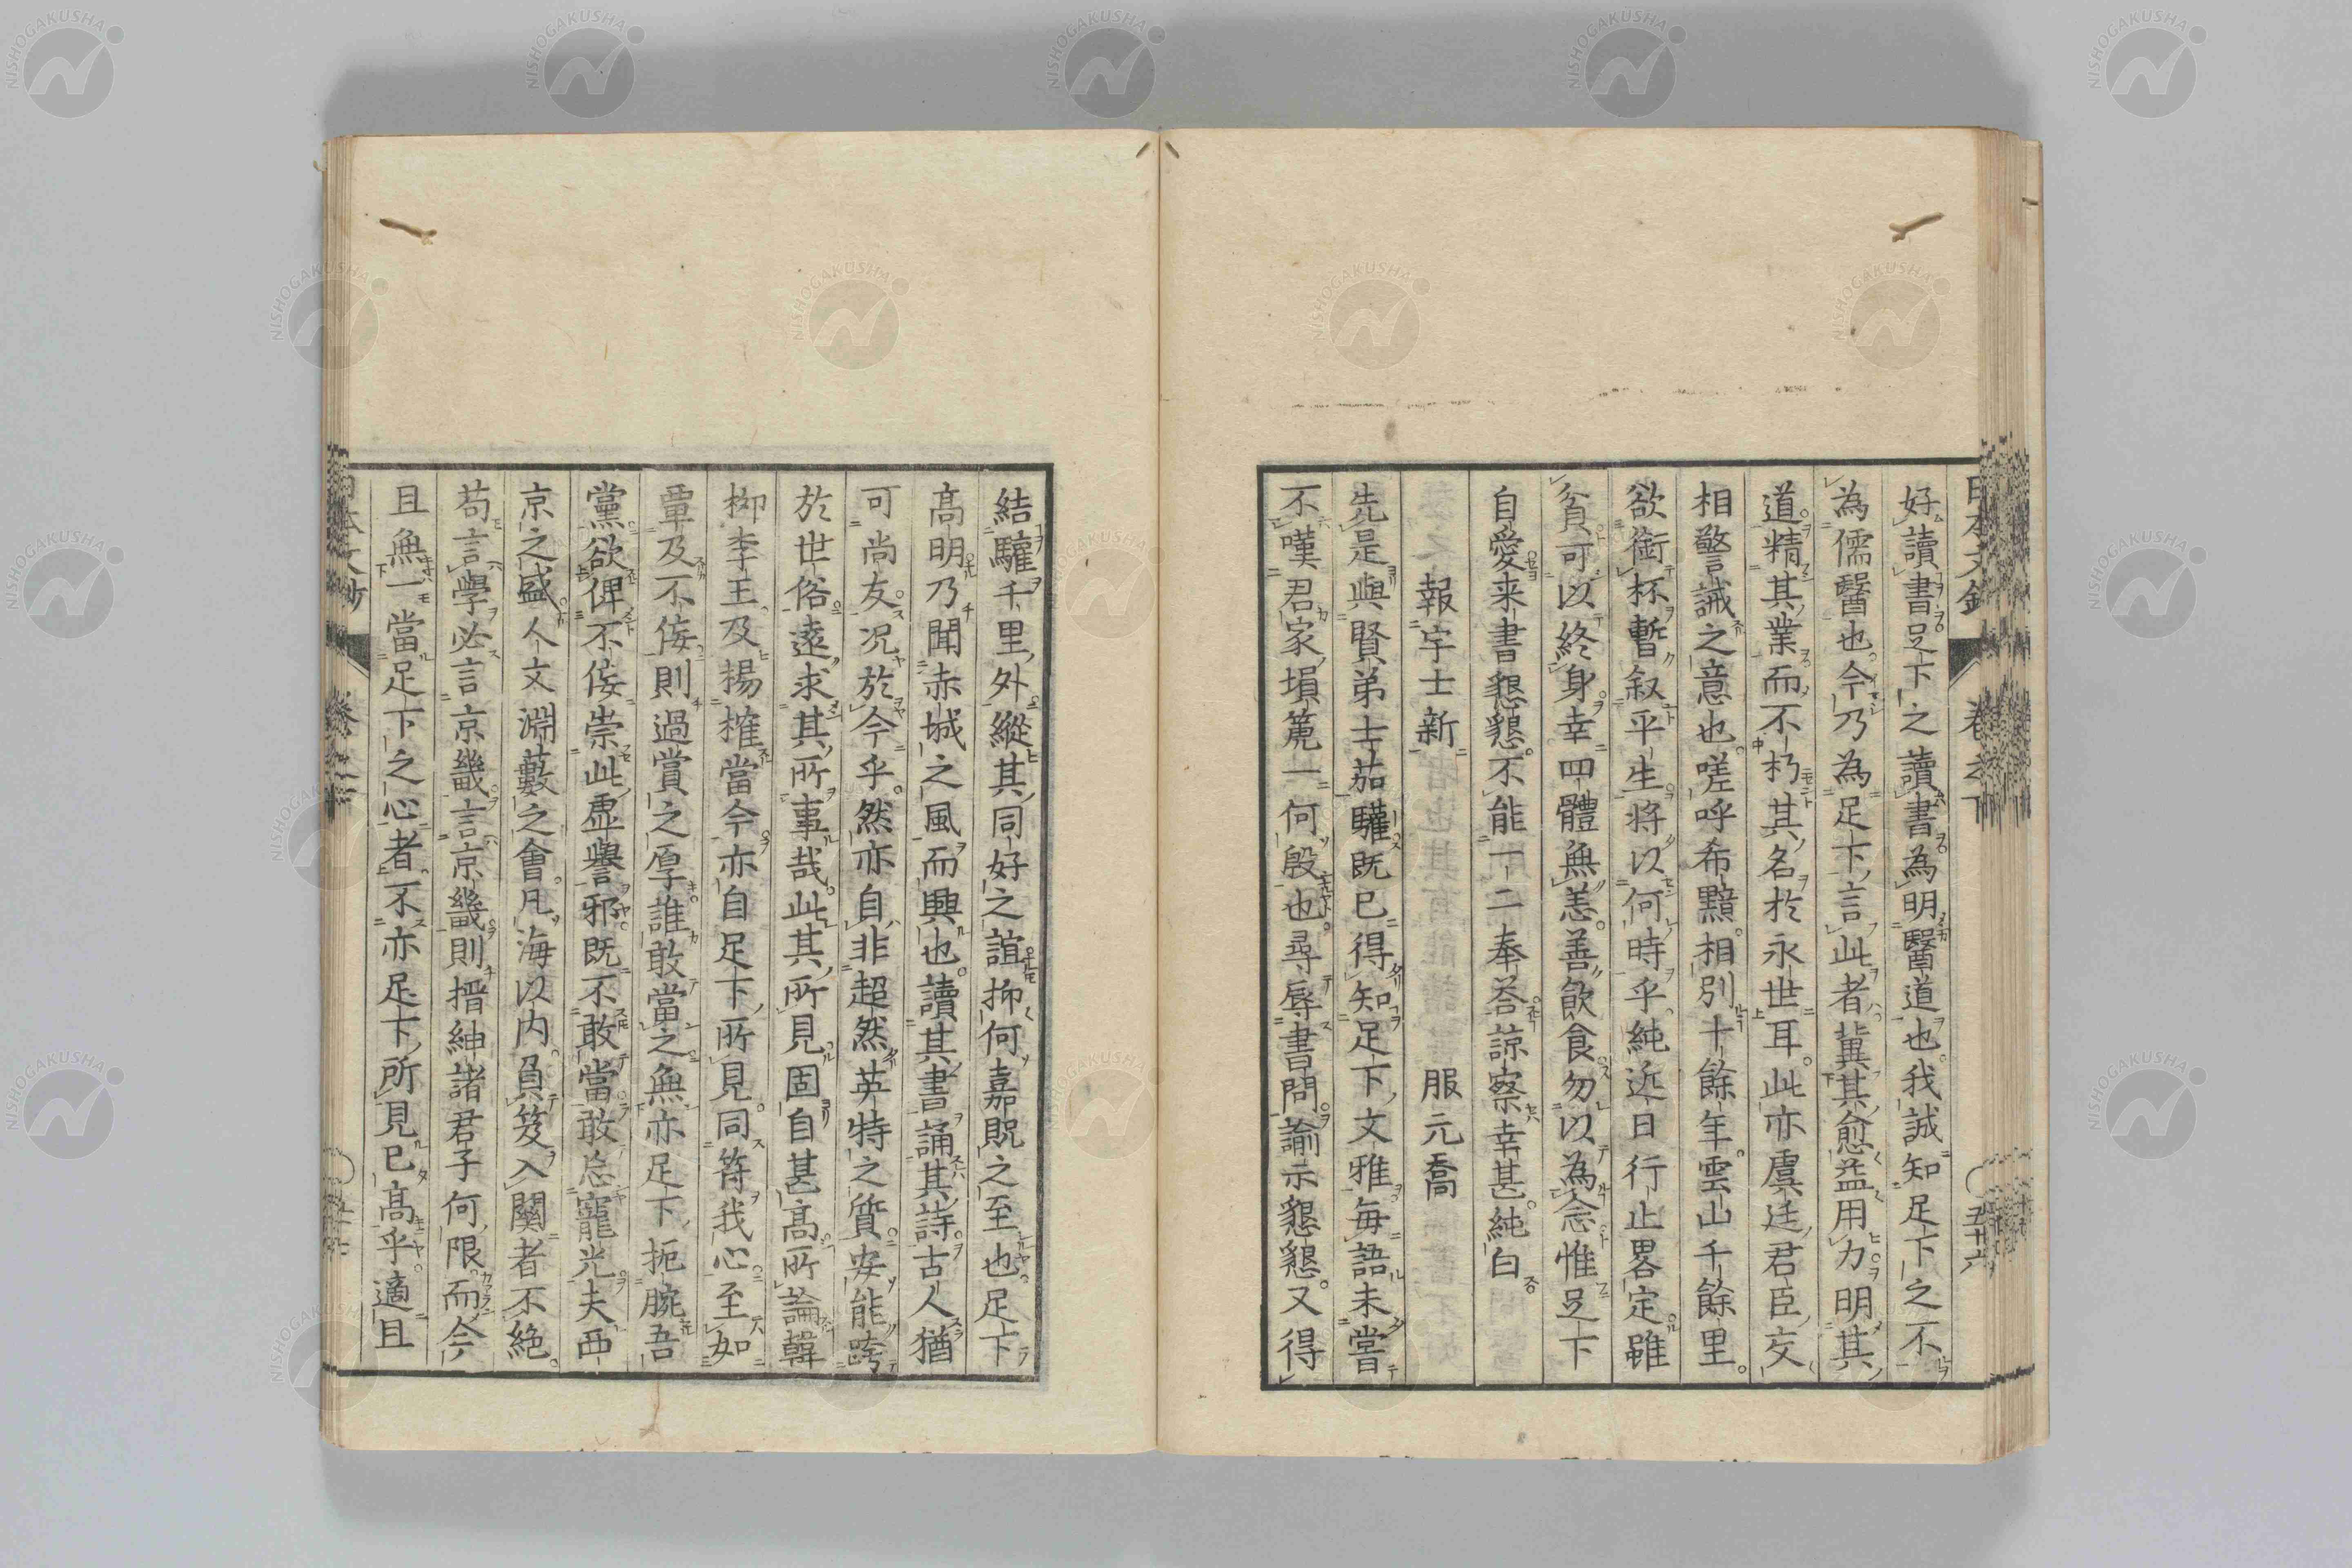 好讀書足下之讀書為明醫道也我誠知足下之不
為儒醫也今乃為足下言此者冀其愈益用力明其
道精其業而不朽其名於永世耳此亦虞廷君臣交
相警誡之意也嗟呼希黯相別十餘年雲山千餘里
欲銜杯暫叙平生將以何時乎純近日行止畧定雖
貧可以終身幸四體無恙善飲食勿以為念惟足下
自愛来書懇懇不能一二奉荅諒察幸甚純白
報宇士新　服元喬
先是與賢弟士茹驩既已得知足下文雅毎語未嘗
不嘆君家塤篪一何殷也尋辱書問諭示懇懇又得
結驩千里外縱其同好之誼抑何嘉貺之至也足下
高明乃聞赤城之風而興也讀其書誦其詩古人猶
可尚友况於今乎然亦自非超然英特之質安能跨
於世俗遠求其所事哉此其所見固自甚高所論韓
柳李王及揚搉當今亦自足下所見同符我心至如
覃及不侫則過賞之厚誰敢當之無亦足下扼腕吾
黨欲俾不侫崇此虚譽邪既不敢當敢忘寵光夫西
京之盛人文淵藪之會凡海以内負笈入關者不絶
苟言學必言京畿言京畿則搢紳諸君子何限而今
且無一當足下之心者不亦足下所見已高乎適且
日本文鈔
卷之下
五十六
NISHOGAKUSHA